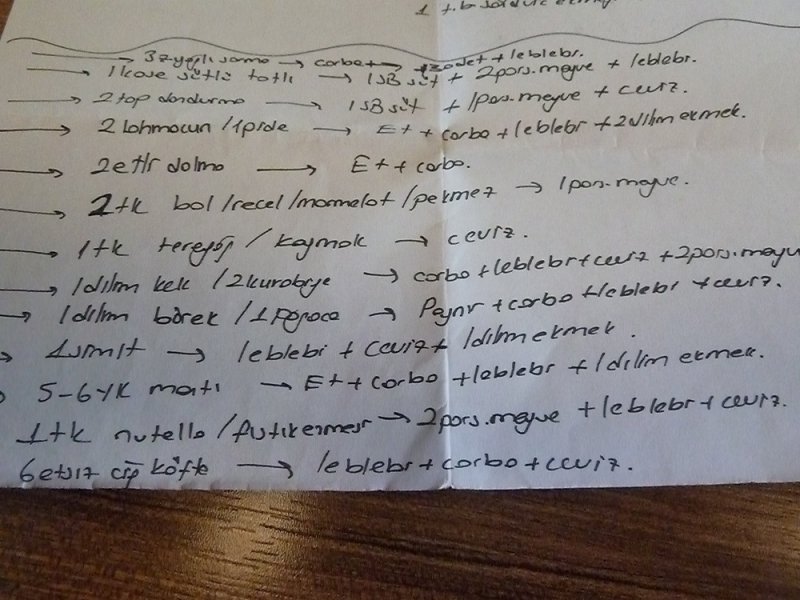 3 zeytyağlı sarma → çorba + + leblebi.
1 kase sütlü tatlı → 1SB süt + 2 pors. meyve + leblebi.
2 top dondurma → 1SB süt + 1 pors. meyve + ceviz.
2 lahmacun / 1 pide → Et + çorba + leblebi + 2 dilim ekmek.
2 etli dolma → Et + çorba.
2tk bal / reçel / marmelat / pekmez → 1 pors. meyve.
1tk tereyağı / kaymak → ceviz.
1 dilim kek / 2 kurabiye → çorba + leblebi + ceviz + 2 pors. meyve
1 dilim börek / 1 poğaça → Peynir + çorba + leblebi + ceviz.
1 simit → leblebi + ceviz + 1 dilim ekmek.
5-6 YK mantı → Et + çorba + leblebi + 1 dilim ekmek.
1tk nutella / fıstıkezmesi → 2 pors. meyve + leblebi + ceviz.
6 etsiz çiğ köfte → leblebi + çorba + ceviz.